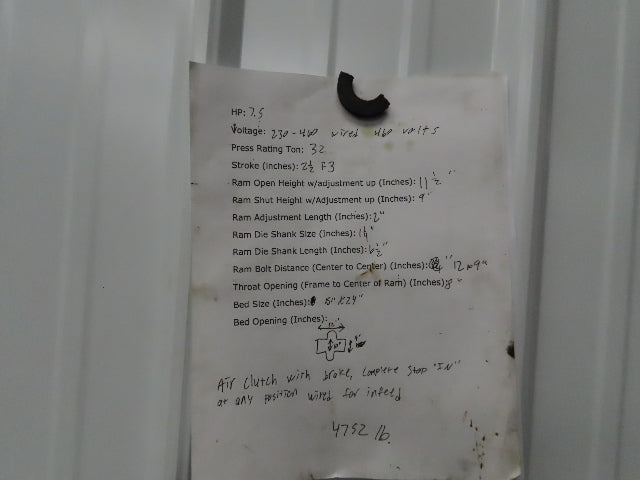 HP: 7.5
Voltage: 230-460 wired 460 volts
Press Rating Ton: 32
Stroke (Inches): 2½ F3
Ram Open Height w/adjustment up (Inches): 11 ½"
Ram Shut Height w/Adjustment up (Inches): 9"
Ram Adjustment Length (Inches): 2"
Ram Die Shank Size (Inches):
Ram Die Shank Length (Inches): 6½"
Ram Bolt Distance (Center to Center) (Inches): 12 x 9"
Throat Opening (Frame to Center of Ram) (Inches): 8"
Bed Size (Inches): 15" x 24"
Bed Opening (Inches):
Air Clutch with brake, complete stop "IN"
at any position wired for infeed
4752 lb.